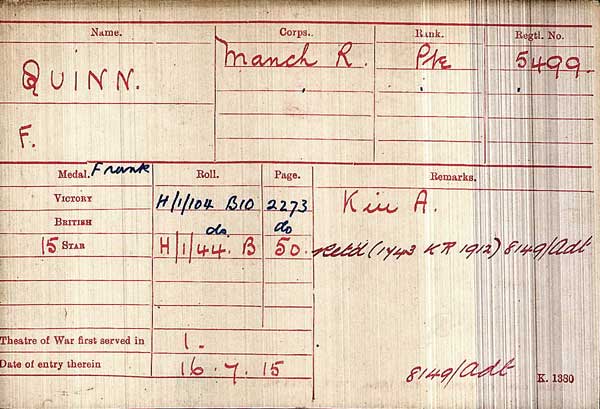 Name. Corps. Rank. Regtl. No.
QUINN. Manch R. Pte 5499.
F.
Medal. Frank Roll. Page. Remarks.
VICTORY H/1/104 B10 2273 Kiu A.
BRITISH do. do
15 STAR H/1/44. B 50. Retd (1743 KR 1912) 8149/Adt
Theatre of War first served in 1.
Date of entry therein 16.7.15
8149/Adt K. 1380